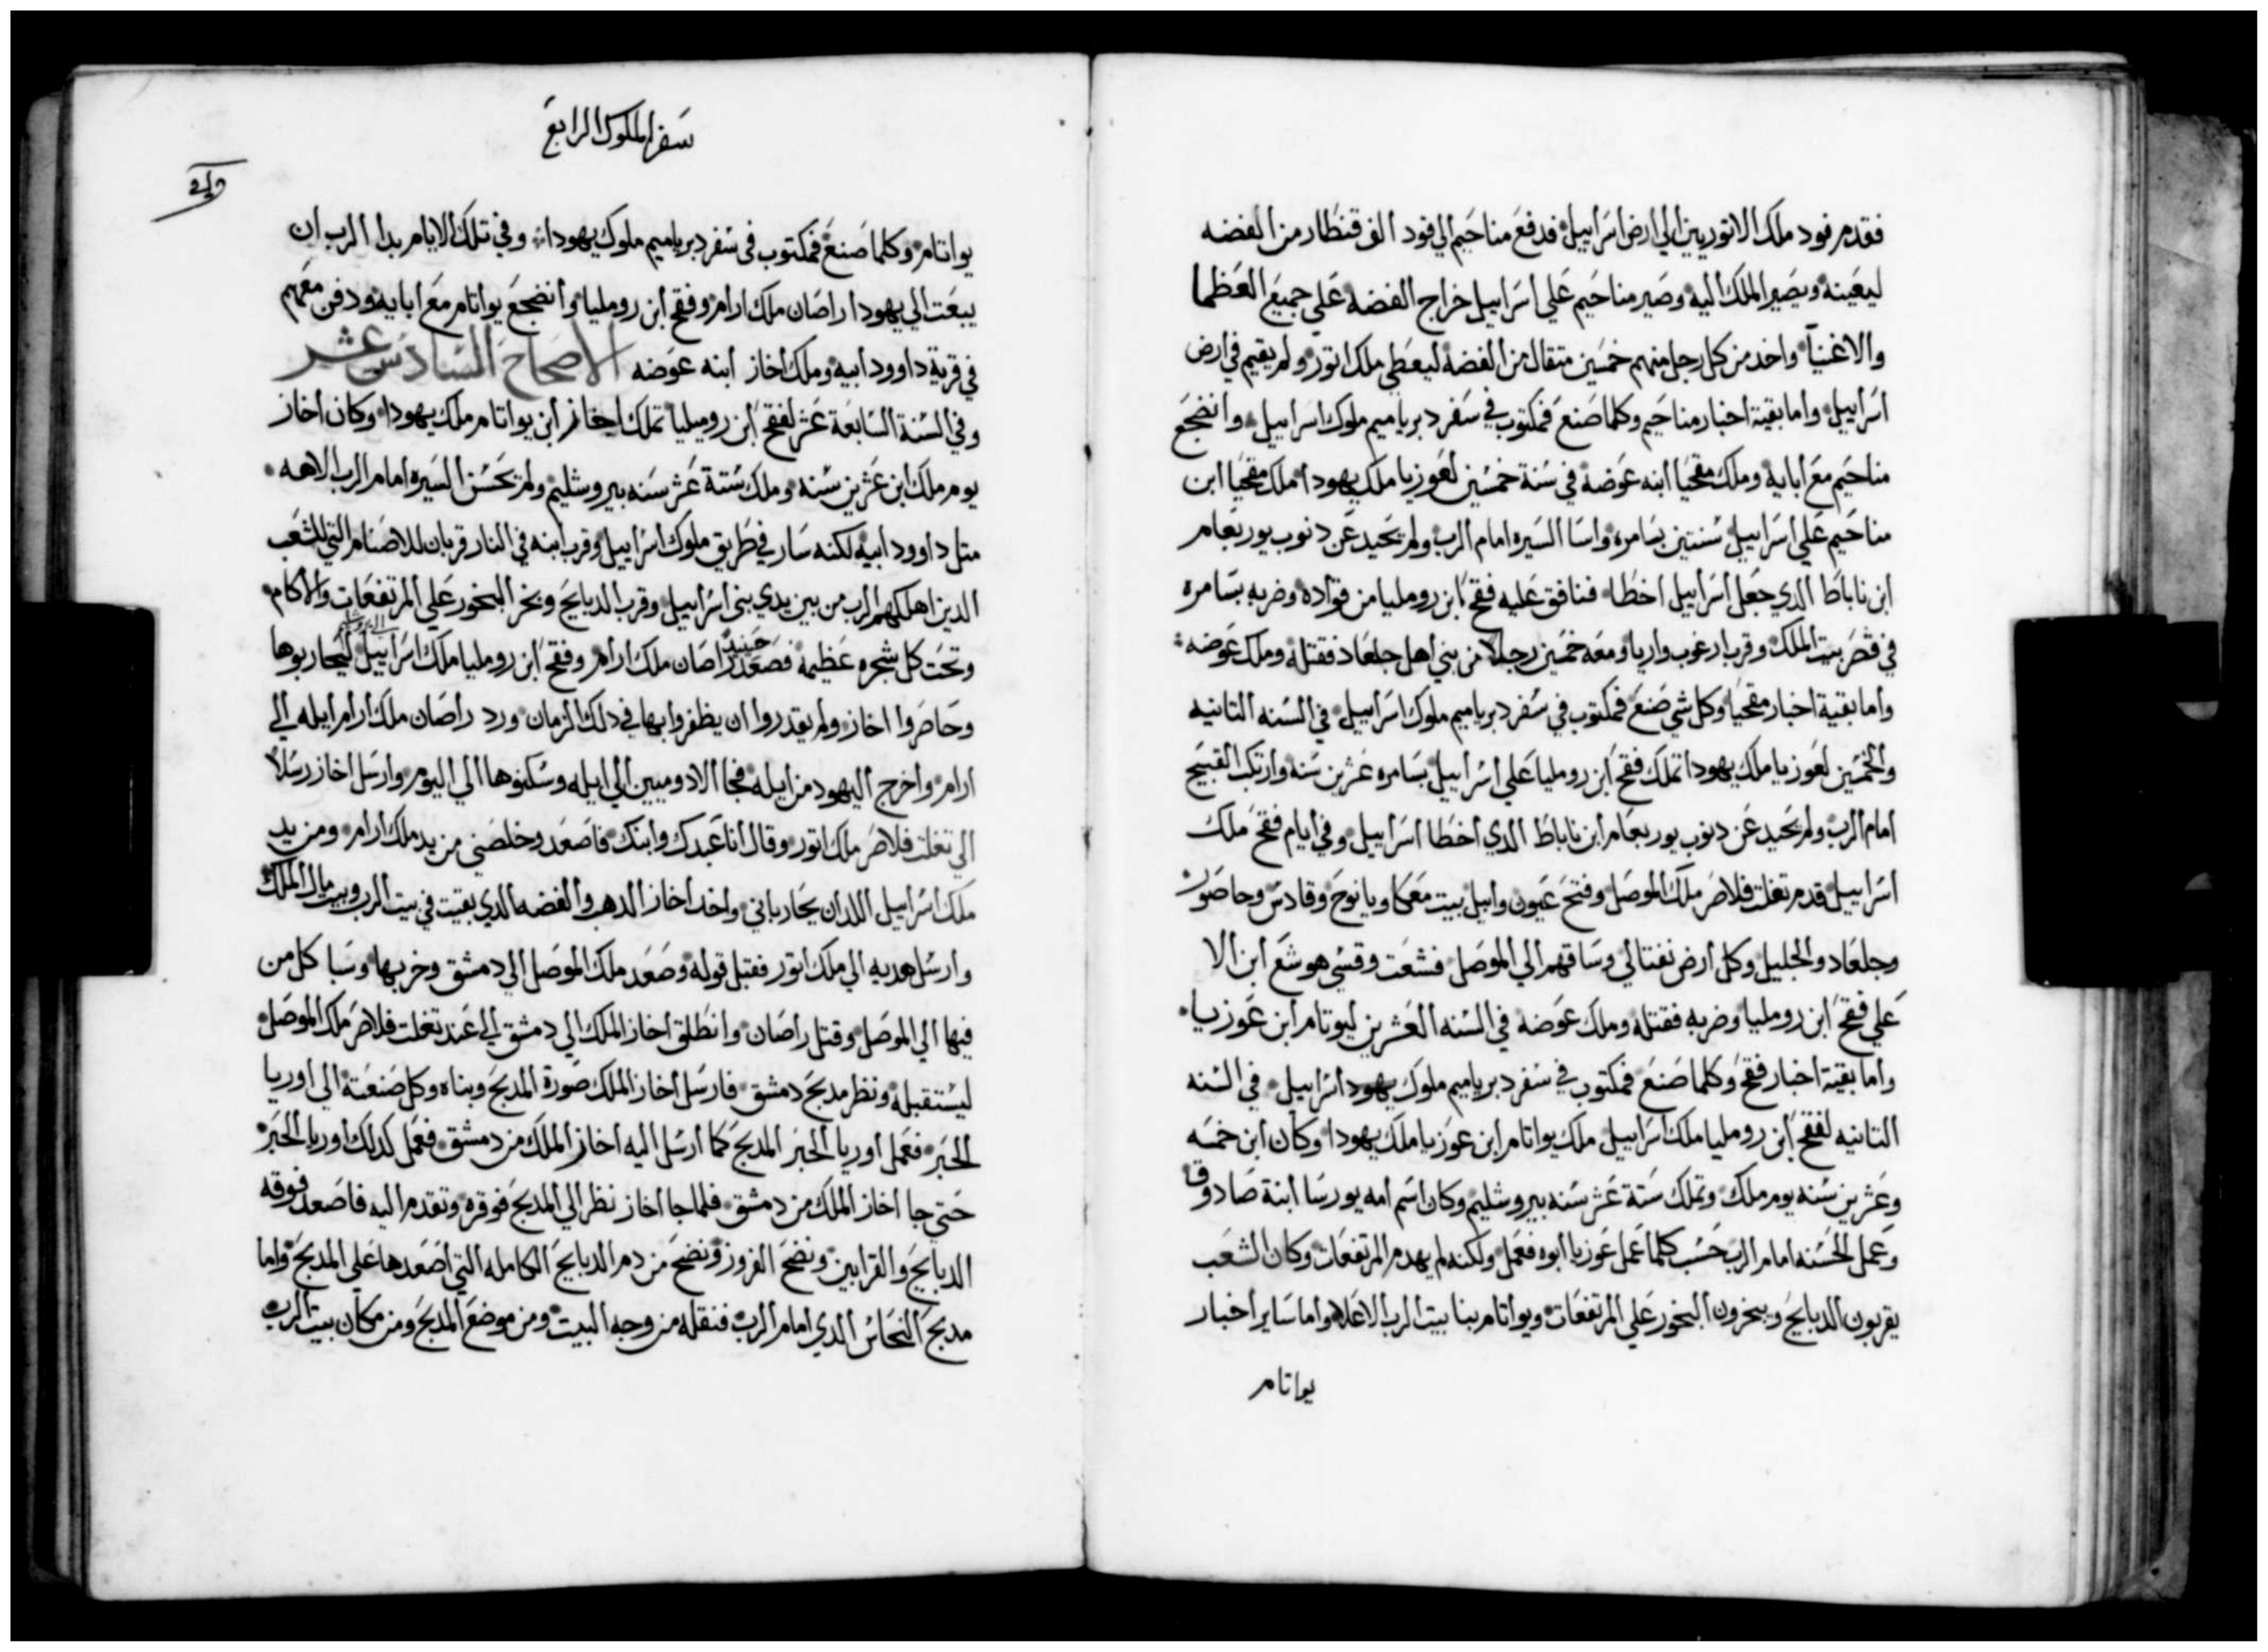 فقدم فود ملك الاتوريين الي ارض اسراييل فدفع مناحيم الي فود الف قنطار من الفضه
ليعينه ويصير الملك اليه وصير مناحيم علي اسراييل خراج الفضه علي جميع العظما
والاغنيآ واخد من كل رجل منهم خمسين متقال من الفضه ليعطي ملك اتور ولم يقيم في ارض
اسراييل واما بقية اخبار مناحيم وكلما صنع فمكتوب في سفر دبرياميم ملوك اسراييل وانضجع
مناحيم مع ابايه وملك مقحيا ابنه عوضه في سنة خمسين لعوزيا ملك يهودا ملك مقحيا ابن
مناحيم علي اسراييل سنتين بسامره واسا السيره امام الرب ولم يحيد عن دنوب يوربعام
ابن ناباط الدي جعل اسراييل اخطا فنافق عليه فقح ابن رومليا من قواده وضربه بسامره
في قصر بيت الملك وقرب ارغوب واريا ومعه خمسين رجلا من بني اهل جلعاد فقتله وملك عوضه
واما بقية اخبار مقحيا وكل شي صنع فمكتوب في سفر دبرياميم ملوك اسراييل في السنه التانيه
والخمسين لعوزيا ملك يهودا تملك فقح ابن رومليا علي اسراييل بسامره عشرين سنه وارتكب القبيح
امام الرب ولم يحيد عن دنوب يوربعام ابن ناباط الدي اخطا اسراييل وفي ايام فقح ملك
اسراييل قدم تغلت فلاصر ملك الموصل وفتح عيون وابيل بيت معكا ويانوح وقادس وحاصور
وجلعاد والجليل وكل ارض نفتالي وساقهم الي الموصل فشعت وقسي هوشع ابن الا
علي فقح ابن رومليا وضربه فقتله وملك عوضه في السنه العشرين ليوتام ابن عوزيا
واما بقية اخبار فقح وكلما صنع فمكتوب في سفر دبرياميم ملوك يهودا اسراييل في السنه
التانيه لفقح ابن رومليا ملك اسراييل ملك يواتام ابن عوزيا ملك يهودا وكان ابن خمسه
وعشرين سنه يوم ملك وتملك ستة عشر سنه بيروشليم وكان اسم امه يورسا ابنة صادوق
وعمل الحسنه امام الرب حسب كلما عمل عوزيا ابوه فعمل ولكنه لم يهدم المرتفعات وكان الشعب
يقربون الدبايح ويبخرون البخور علي المرتفعات ويواتام بنا بيت الرب الاعلا واما ساير اخبار
يواتام
سفر الملوك الرابع
يواتام وكلما صنع فمكتوب في سفر دبرياميم ملوك يهودا وفي تلك الايام بدا الرب ان
يبعت الي يهودا راصان ملك ارام وفقح ابن رومليا وانضجع يواتام مع ابايه ودفن معهم
في قرية داوود ابيه وملك اخاز ابنه عوضه الاصحاح السادس عشر
وفي السنة السابعة عشر لفقح ابن رومليا تملك اخاز ابن يواتام ملك يهودا وكان اخاز
يوم ملك ابن عشرين سنه وملك ستة عشر سنه بيروشليم ولم يحسن السيره امام الرب الاهه
متل داوود ابيه لكنه سار في طريق ملوك اسراييل وقرب ابنه في النار قربان للاصنام التي للشعب
الدين اهلكهم الرب من بين يدي بني اسراييل وقرب الدبايح وبخر البخور علي المرتفعات والاكام
وتحت كل شجره عظيمه حينيد فصعد راصان ملك ارام وفقح ابن رومليا ملك اسراييل ليحاربوها
وحاصروا اخاز ولم يقدروا ان يظفروا بها في دلك الزمان ورد راصان ملك ارام ايله الي
ارام واخرج اليهود من ايله فجا الادوميين الي ايله وسكنوها الي اليوم وارسل اخاز رسلا
الي تغلت فلاصر ملك اتور وقال انا عبدك وابنك فاصعد وخلصني من يد ملك ارام ومن يد
ملك اسراييل اللدان يحارباني واخد اخاز الدهب والفضه الدي بقيت في بيت الرب وبيت مال الملك
وارسل هديه الي ملك اتور فقبل قوله وصعد ملك الموصل الي دمشق وخربها وسبا كل من
فيها الي الموصل وقتل راصان وانطلق اخاز الملك الي دمشق الي عند تغلت فلاصر ملك الموصل
ليستقبله ونظر مدبح دمشق فارسل اخاز الملك صورة المدبح وبناه وكل صنعته الي اوريا
الحبر فعمل اوريا الحبر المدبح كما ارسل اليه اخاز الملك من دمشق فعمل كدلك اوريا الحبر
حتي جا اخاز الملك من دمشق فلما جا اخاز نظر الي المدبح فوقره وتقدم اليه فاصعد فوقه
الدبايح والقرابين ونضح الفزوز ونضح من دم الدبايح الكامله التي اصعدها علي المدبح واما
مدبح النحاس الدي امام الرب فنقله من وجه البيت ومن موضع المدبح ومن مكان بيت الرب